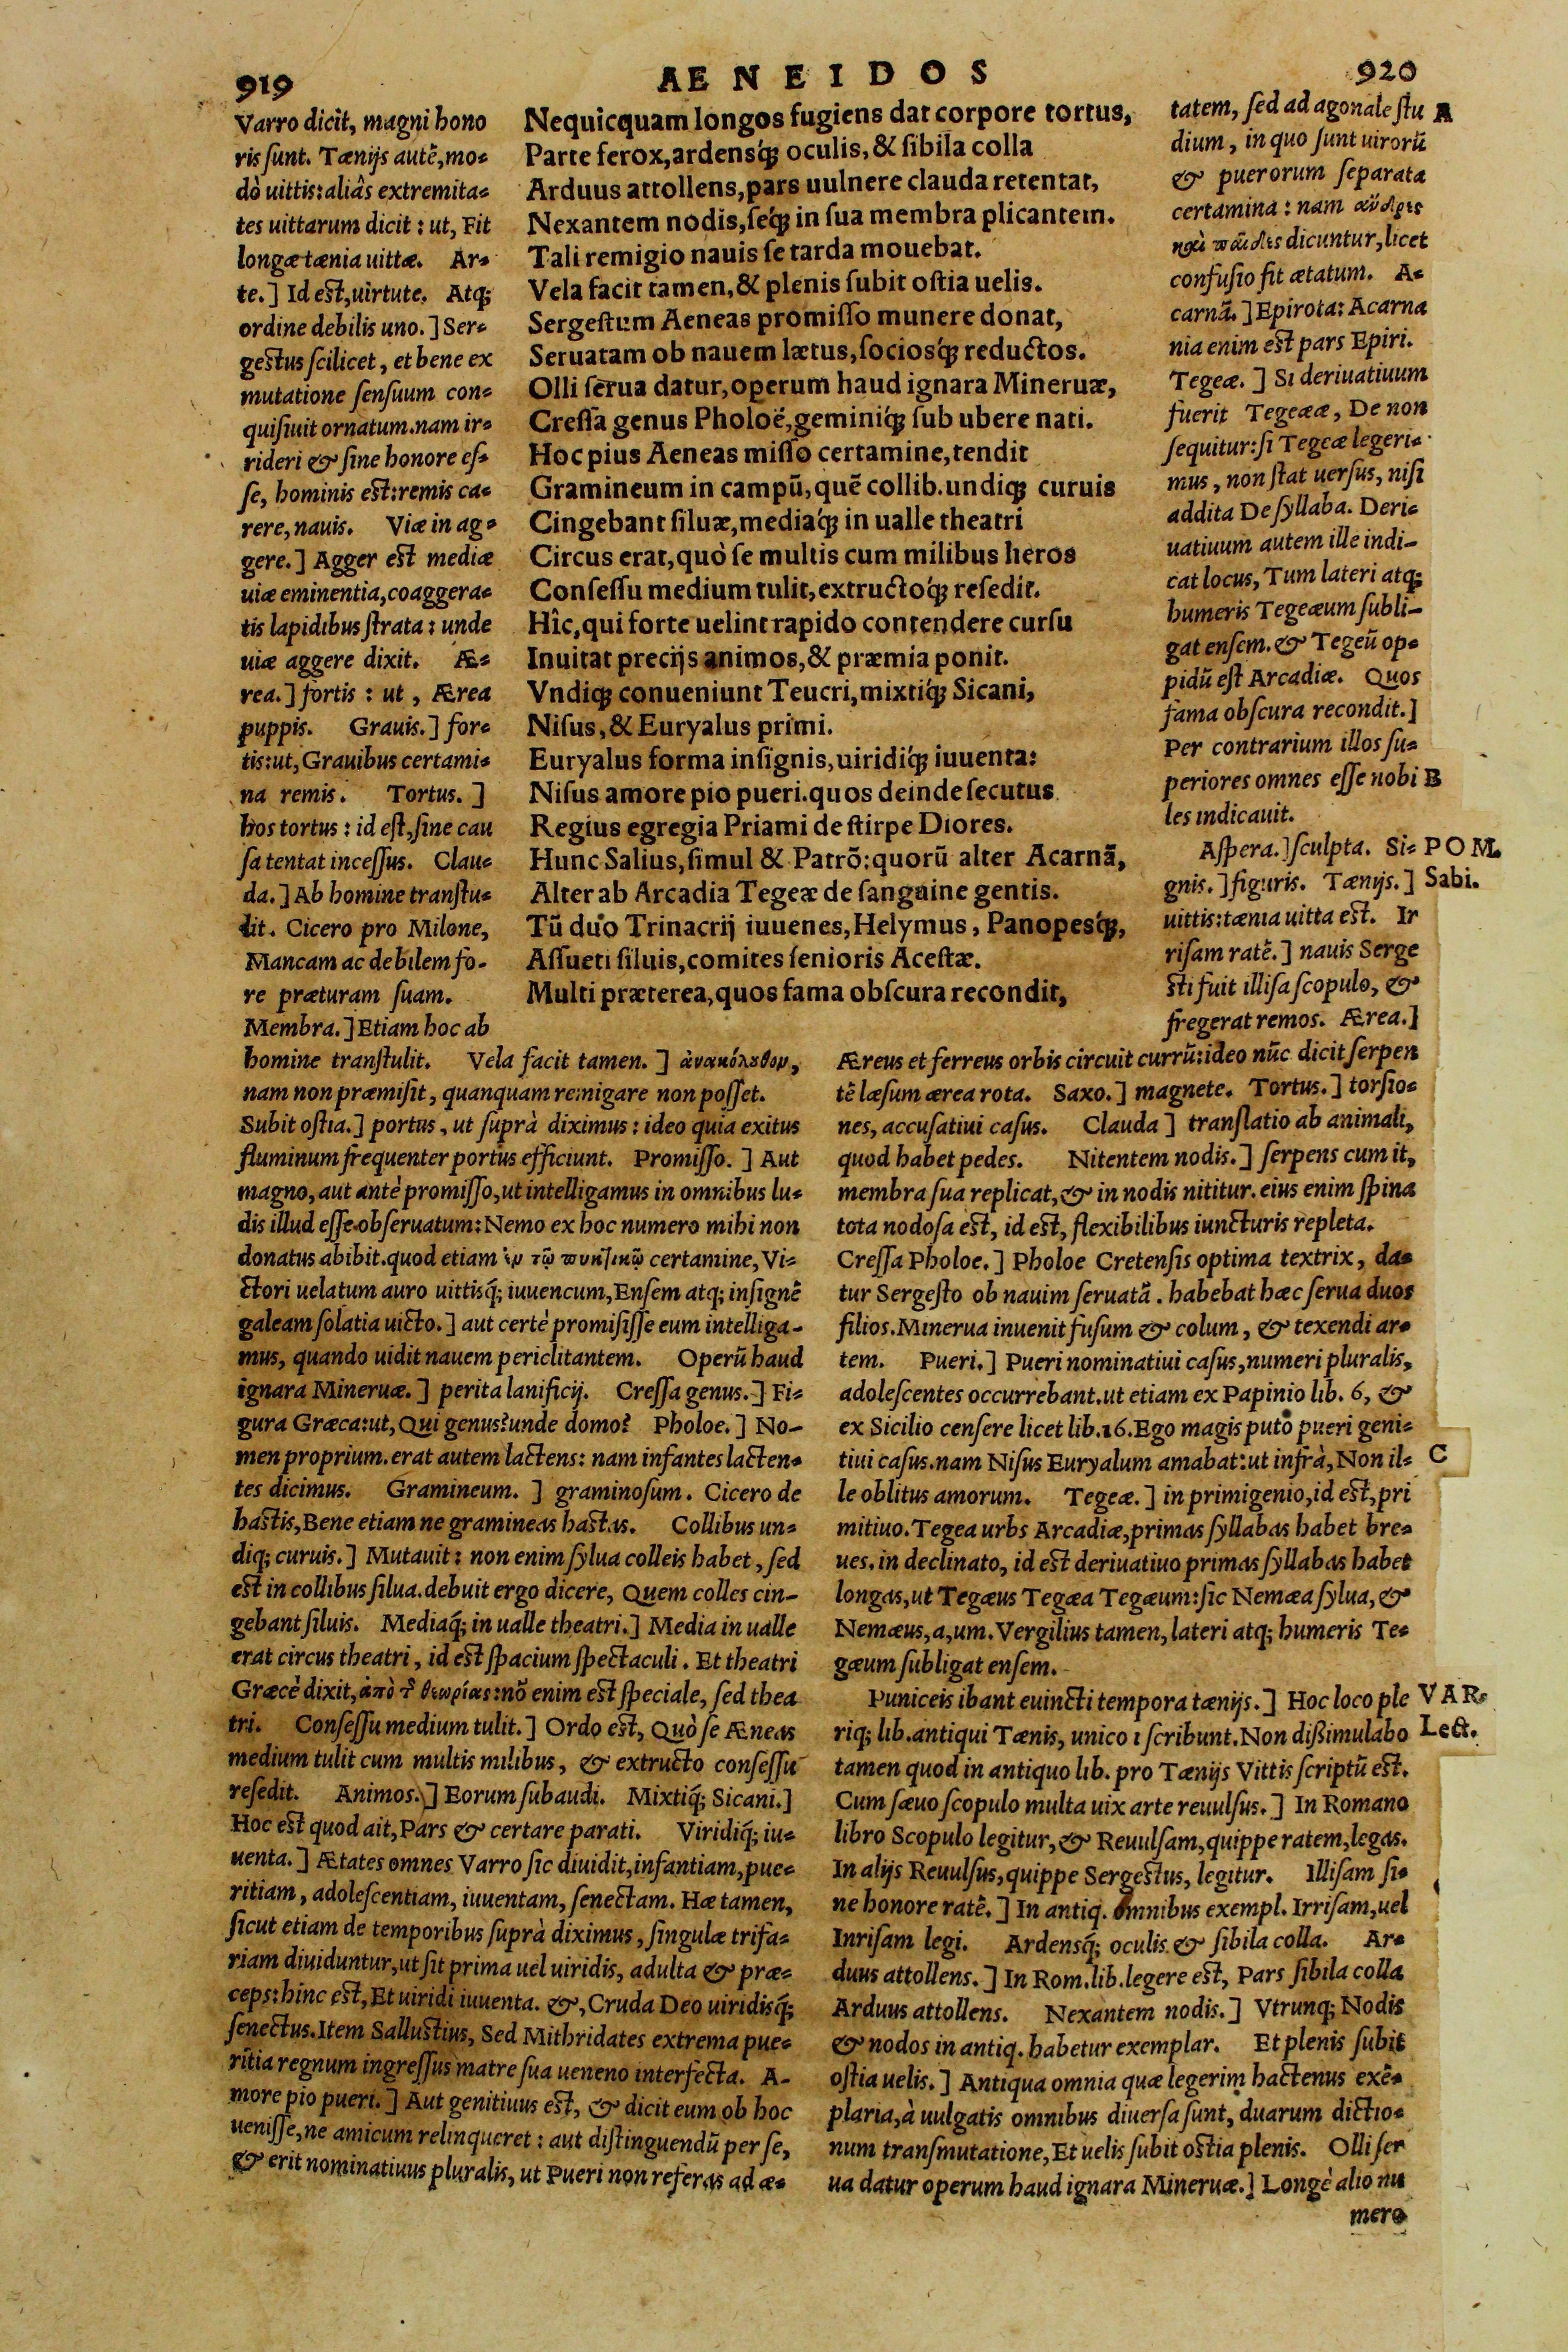 919
AENEIDOS
920
Varro dicit, magni hono
ris sunt. Tænijs autē, mo⸗
dò uittis: aliâs extremita⸗
tes uittarum dicit: ut, Fit
longæ tænia uittæ. Ar⸗
te.] Id est, uirtute. Atq;
ordine debilis uno.] Ser⸗
gestus scilicet, et bene ex
mutatione sensuum con⸗
quisiuit ornatum. nam ir⸗
rideri & sine honore es⸗
se, hominis est: remis ca⸗
rere, nauis. Viæ in ag⸗
gere.] Agger est mediæ
uiæ eminentia, coaggera⸗
tis lapidibus strata: unde
uiæ aggere dixit. Æ⸗
rea.] fortis: ut, Ærea
puppis. Grauis.] for⸗
tis: ut, Grauibus certami⸗
na remis. Tortus.]
hos tortus: id est, sine cau
sa tentat incessus. Clau⸗
da.] Ab homine transtu⸗
lit. Cicero pro Milone,
Mancam ac debilem fo-
re præturam suam.
Membra.] Etiam hoc ab
Nequicquam longos fugiens dat corpore tortus,
Parte ferox, ardensq́; oculis, & sibila colla
Arduus attollens, pars uulnere clauda retentat,
Nexantem nodis, seq́; in sua membra plicantem.
Tali remigio nauis se tarda mouebat.
Vela facit tamen, & plenis subit ostia uelis.
Sergestum Aeneas promisso munere donat,
Seruatam ob nauem lætus, sociosq́; reductos.
Olli serua datur, operum haud ignara Mineruæ,
Cressa genus Pholoë, geminiq́; sub ubere nati.
Hoc pius Aeneas misso certamine, tendit
Gramineum in campū, quē collib. undiq; curuis
Cingebant siluæ, mediaq́; in ualle theatri
Circus erat, quò se multis cum milibus heros
Consessu medium tulit, extructoq́; resedit.
Hîc, qui forte uelint rapido contendere cursu
Inuitat precijs animos, & præmia ponit.
Vndiq; conueniunt Teucri, mixtiq́; Sicani,
Nisus, & Euryalus primi.
Euryalus forma insignis, uiridiq́; iuuenta:
Nisus amore pio pueri. quos deinde secutus
Regius egregia Priami de stirpe Diores.
Hunc Salius, simul & Patrō: quorū alter Acarnā,
Alter ab Arcadia Tegeæ de sanguine gentis.
Tū duo Trinacrij iuuenes, Helymus, Panopesq́;,
Assueti siluis, comites senioris Acestæ.
Multi præterea, quos fama obscura recondit,
tatem, sed ad agonale stu A
dium, in quo sunt uirorū
& puerorum separata
certamina: nam ἄνδρες
καὶ παῖδες dicuntur, licet
confusio sit ætatum. A⸗
carnā.] Epirota: Acarna
nia enim est pars Epiri.
Tegeæ.] Si deriuatiuum
fuerit Tegeææ, De non
sequitur: si Tegeæ legeri⸗
mus, non stat uersus, nisi
addita De syllaba. Deri⸗
uatiuum autem ille indi-
cat locus, Tum lateri atq;
humeris Tegeæum subli-
gat ensem. & Tegeū op⸗
pidū est Arcadiæ. Quos
fama obscura recondit.]
Per contrarium illos su⸗
periores omnes esse nobi B
les indicauit.
Aspera.] sculpta. Si⸗ POM.
gnis.] figuris. Tænijs.] Sabi.
uittis: tænia uitta est. Ir
risam ratē.] nauis Serge
sti fuit illisa scopulo, &
fregerat remos. Ærea.]
homine transtulit. Vela facit tamen.] ἀνακόλουθον,
nam non præmisit, quanquam remigare non posset.
Subit ostia.] portus, ut suprà diximus: ideo quia exitus
fluminum frequenter portus efficiunt. Promisso.] Aut
magno, aut antè promisso, ut intelligamus in omnibus lu⸗
dis illud esse obseruatum: Nemo ex hoc numero mihi non
donatus abibit. quod etiam ἐν τῷ πυκτικῷ certamine, Vi⸗
ctori uelatum auro uittisq́; iuuencum, Ensem atq; insignē
galeam solatia uicto.] aut certè promisisse eum intelliga-
mus, quando uidit nauem periclitantem. Operū haud
ignara Mineruæ.] perita lanificij. Cressa genus.] Fi⸗
gura Græca: ut, Qui genus? unde domo? Pholoe.] No-
men proprium. erat autem lactens: nam infantes lacten⸗
tes dicimus. Gramineum.] graminosum. Cicero de
hastis, Bene etiam ne gramineas hastas. Collibus un⸗
diq; curuis.] Mutauit: non enim sylua colleis habet, sed
est in collibus silua. debuit ergo dicere, Quem colles cin-
gebant siluis. Mediaq́; in ualle theatri.] Media in ualle
erat circus theatri, id est spacium spectaculi. Et theatri
Græcè dixit, ἀπὸ τ͂ θεωρίας: nō enim est speciale, sed thea
tri. Consessu medium tulit.] Ordo est, Quò se Æneas
medium tulit cum multis milibus, & extructo consessu
resedit. Animos.] Eorum subaudi. Mixtiq́; Sicani.]
Hoc est quod ait, Pars & certare parati. Viridiq́; iu⸗
uenta.] Ætates omnes Varro sic diuidit, infantiam, pue⸗
ritiam, adolescentiam, iuuentam, senectam. Hæ tamen,
sicut etiam de temporibus suprà diximus, singulæ trifa⸗
riam diuiduntur, ut sit prima uel uiridis, adulta & præ⸗
ceps: hinc est, Et uiridi iuuenta. &, Cruda Deo uiridisq́;
senectus. Item Sallustius, Sed Mithridates extrema pue⸗
ritia regnum ingressus matre sua ueneno interfecta. A-
more pio pueri.] Aut genitiuus est, & dicit eum ob hoc
uenisse, ne amicum relinqueret: aut distinguendū per se,
& erit nominatiuus pluralis, ut Pueri non referas ad æ⸗
Æreus et ferreus orbis circuit currū: ideo nūc dicit serpen
tē læsum ærea rota. Saxo.] magnete. Tortus.] torsio⸗
nes, accusatiui casus. Clauda] translatio ab animali,
quod habet pedes. Nitentem nodis.] serpens cum it,
membra sua replicat, & in nodis nititur. eius enim spina
tota nodosa est, id est, flexibilibus iuncturis repleta.
Cressa Pholoe.] Pholoe Cretensis optima textrix, da⸗
tur Sergesto ob nauim seruatā. habebat hæc serua duos
filios. Minerua inuenit fusum & colum, & texendi ar⸗
tem. Pueri.] Pueri nominatiui casus, numeri pluralis,
adolescentes occurrebant. ut etiam ex Papinio lib. 6, &
ex Sicilio censere licet lib. 16. Ego magis puto pueri geni⸗
tiui casus. nam Nisus Euryalum amabat: ut infrà, Non il⸗ C
le oblitus amorum. Tegeæ.] in primigenio, id est, pri
mitiuo. Tegea urbs Arcadiæ, primas syllabas habet bre⸗
ues. in declinato, id est deriuatiuo primas syllabas habet
longas, ut Tegæus Tegæa Tegæum: sic Nemæa sylua, &
Nemæus, a, um. Vergilius tamen, lateri atq; humeris Te⸗
gæum subligat ensem.
Puniceis ibant euincti tempora tænijs.] Hoc loco ple VAR.
riq; lib. antiqui Tænis, unico i scribunt. Non dißimulabo Lect.
tamen quod in antiquo lib. pro Tænijs Vittis scriptū est.
Cum sæuo scopulo multa uix arte reuulsus.] In Romano
libro Scopulo legitur, & Reuulsam, quippe ratem, legas.
In alijs Reuulsus, quippe Sergestus, legitur. Illisam si⸗
ne honore ratē.] In antiq. omnibus exempl. Irrisam, uel
Inrisam legi. Ardensq́; oculis & sibila colla. Ar⸗
duus attollens.] In Rom. lib. legere est, Pars sibila colla
Arduus attollens. Nexantem nodis.] Vtrunq; Nodis
& nodos in antiq. habetur exemplar. Et plenis subit
ostia uelis.] Antiqua omnia quæ legerim hactenus exē⸗
plaria, à uulgatis omnibus diuersa sunt, duarum dictio⸗
num transmutatione, Et uelis subit ostia plenis. Olli ser
ua datur operum haud ignara Mineruæ.] Longè alio nu
mero